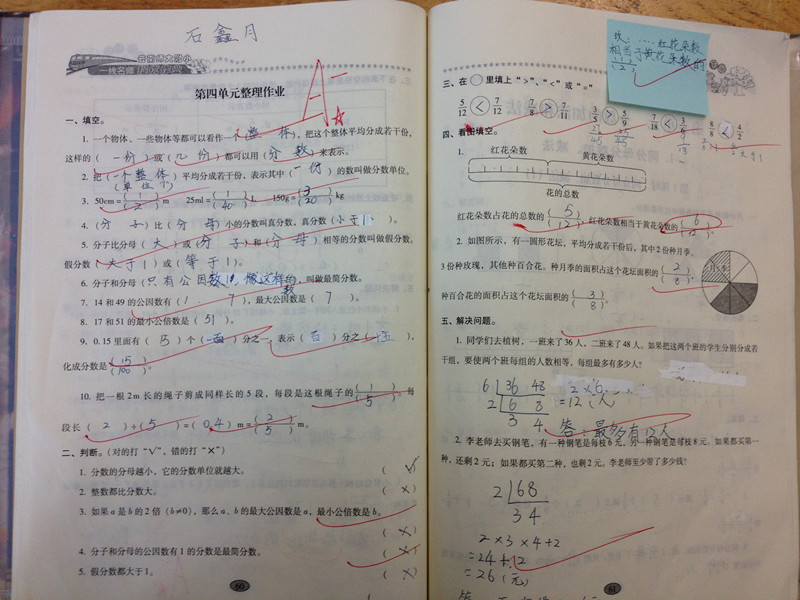 石鑫月
第四单元整理作业
A-
一、填空。
1. 一个物体、一些物体等都可以看作一个(整体),把这个整体平均分成若干份,
这样的(一份)或(几份)都可以用(分数)来表示。
2. 把(一个整体)平均分成若干份,表示其中(一份)的数叫做分数单位。
(单位1)
3. 50cm=(1)/(2)m 25ml=(1)/(40)L 150g=(3)/(20)kg
4. (分子)比(分母)小的分数叫真分数,真分数(小于1)。
5. 分子比分母(大)或(分子)和(分母)相等的分数叫做假分数。
假分数(大于1)或(等于1)。
6. 分子和分母(只有公因数1,像这样的数),叫做最简分数。
7. 14 和 49 的公因数有(1、7),最大公因数是(7)。
8. 17 和 51 的最小公倍数是(51)。
9. 0.15 里面有(15)个(一百)分之一,表示(百)分之(十五),
化成分数是(15)/(100)。
10. 把一根 2 m 长的绳子剪成同样长的 5 段,每段是这根绳子的(1)/(5),每
段长(2)÷(5)=(0.4)m=(2)/(5)m。
二、判断。(对的打“√”,错的打“×”)
1. 分数的分母越小,它的分数单位就越大。 (√)
2. 整数都比分数大。 (×)
3. 如果 a 是 b 的 2 倍(b≠0),那么 a、b 的最大公因数是 a,最小公倍数是 b。
(×)
4. 分子和分母的公因数有 1 的分数是最简分数。 (×)
5. 假分数都大于 1。 (×)
60
红花朵数
相当于黄花朵数的
三、在○里填上“>”、“<”或“=”
5/12 < 7/12 7/8 > 7/11 3/5 > 5/9 7/18 < 3/6 8/8 < 4/2
四、看图填空。
1. 红花朵数 黄花朵数
花的总数
红花朵数占花的总数的(5)/(12),红花朵数相当于黄花朵数的(6)/(12)。
2. 如图所示,有一圆形花坛,平均分成若干份后,其中 2 份种月季,
3 份种玫瑰,其他种百合花。种月季的面积占这个花坛面积的(2)/(8),
种百合花的面积占这个花坛面积的(3)/(8)。
五、解决问题。
1. 同学们去植树,一班来了 36 人,二班来了 48 人。如果把这两个班的学生分别分成若
干组,要使两个班每组的人数相等,每组最多有多少人?
6 36 48 2×6
2 6 8 =12(人)
3 4
答:最多有12人
2. 李老师去买钢笔,有一种钢笔是每枝 6 元,另一种钢笔是每枝 8 元。如果都买第一
种,还剩 2 元;如果都买第二种,也剩 2 元。李老师至少带了多少钱?
2 68
3 4
2×3×4+2
=24+2
=26(元)
61